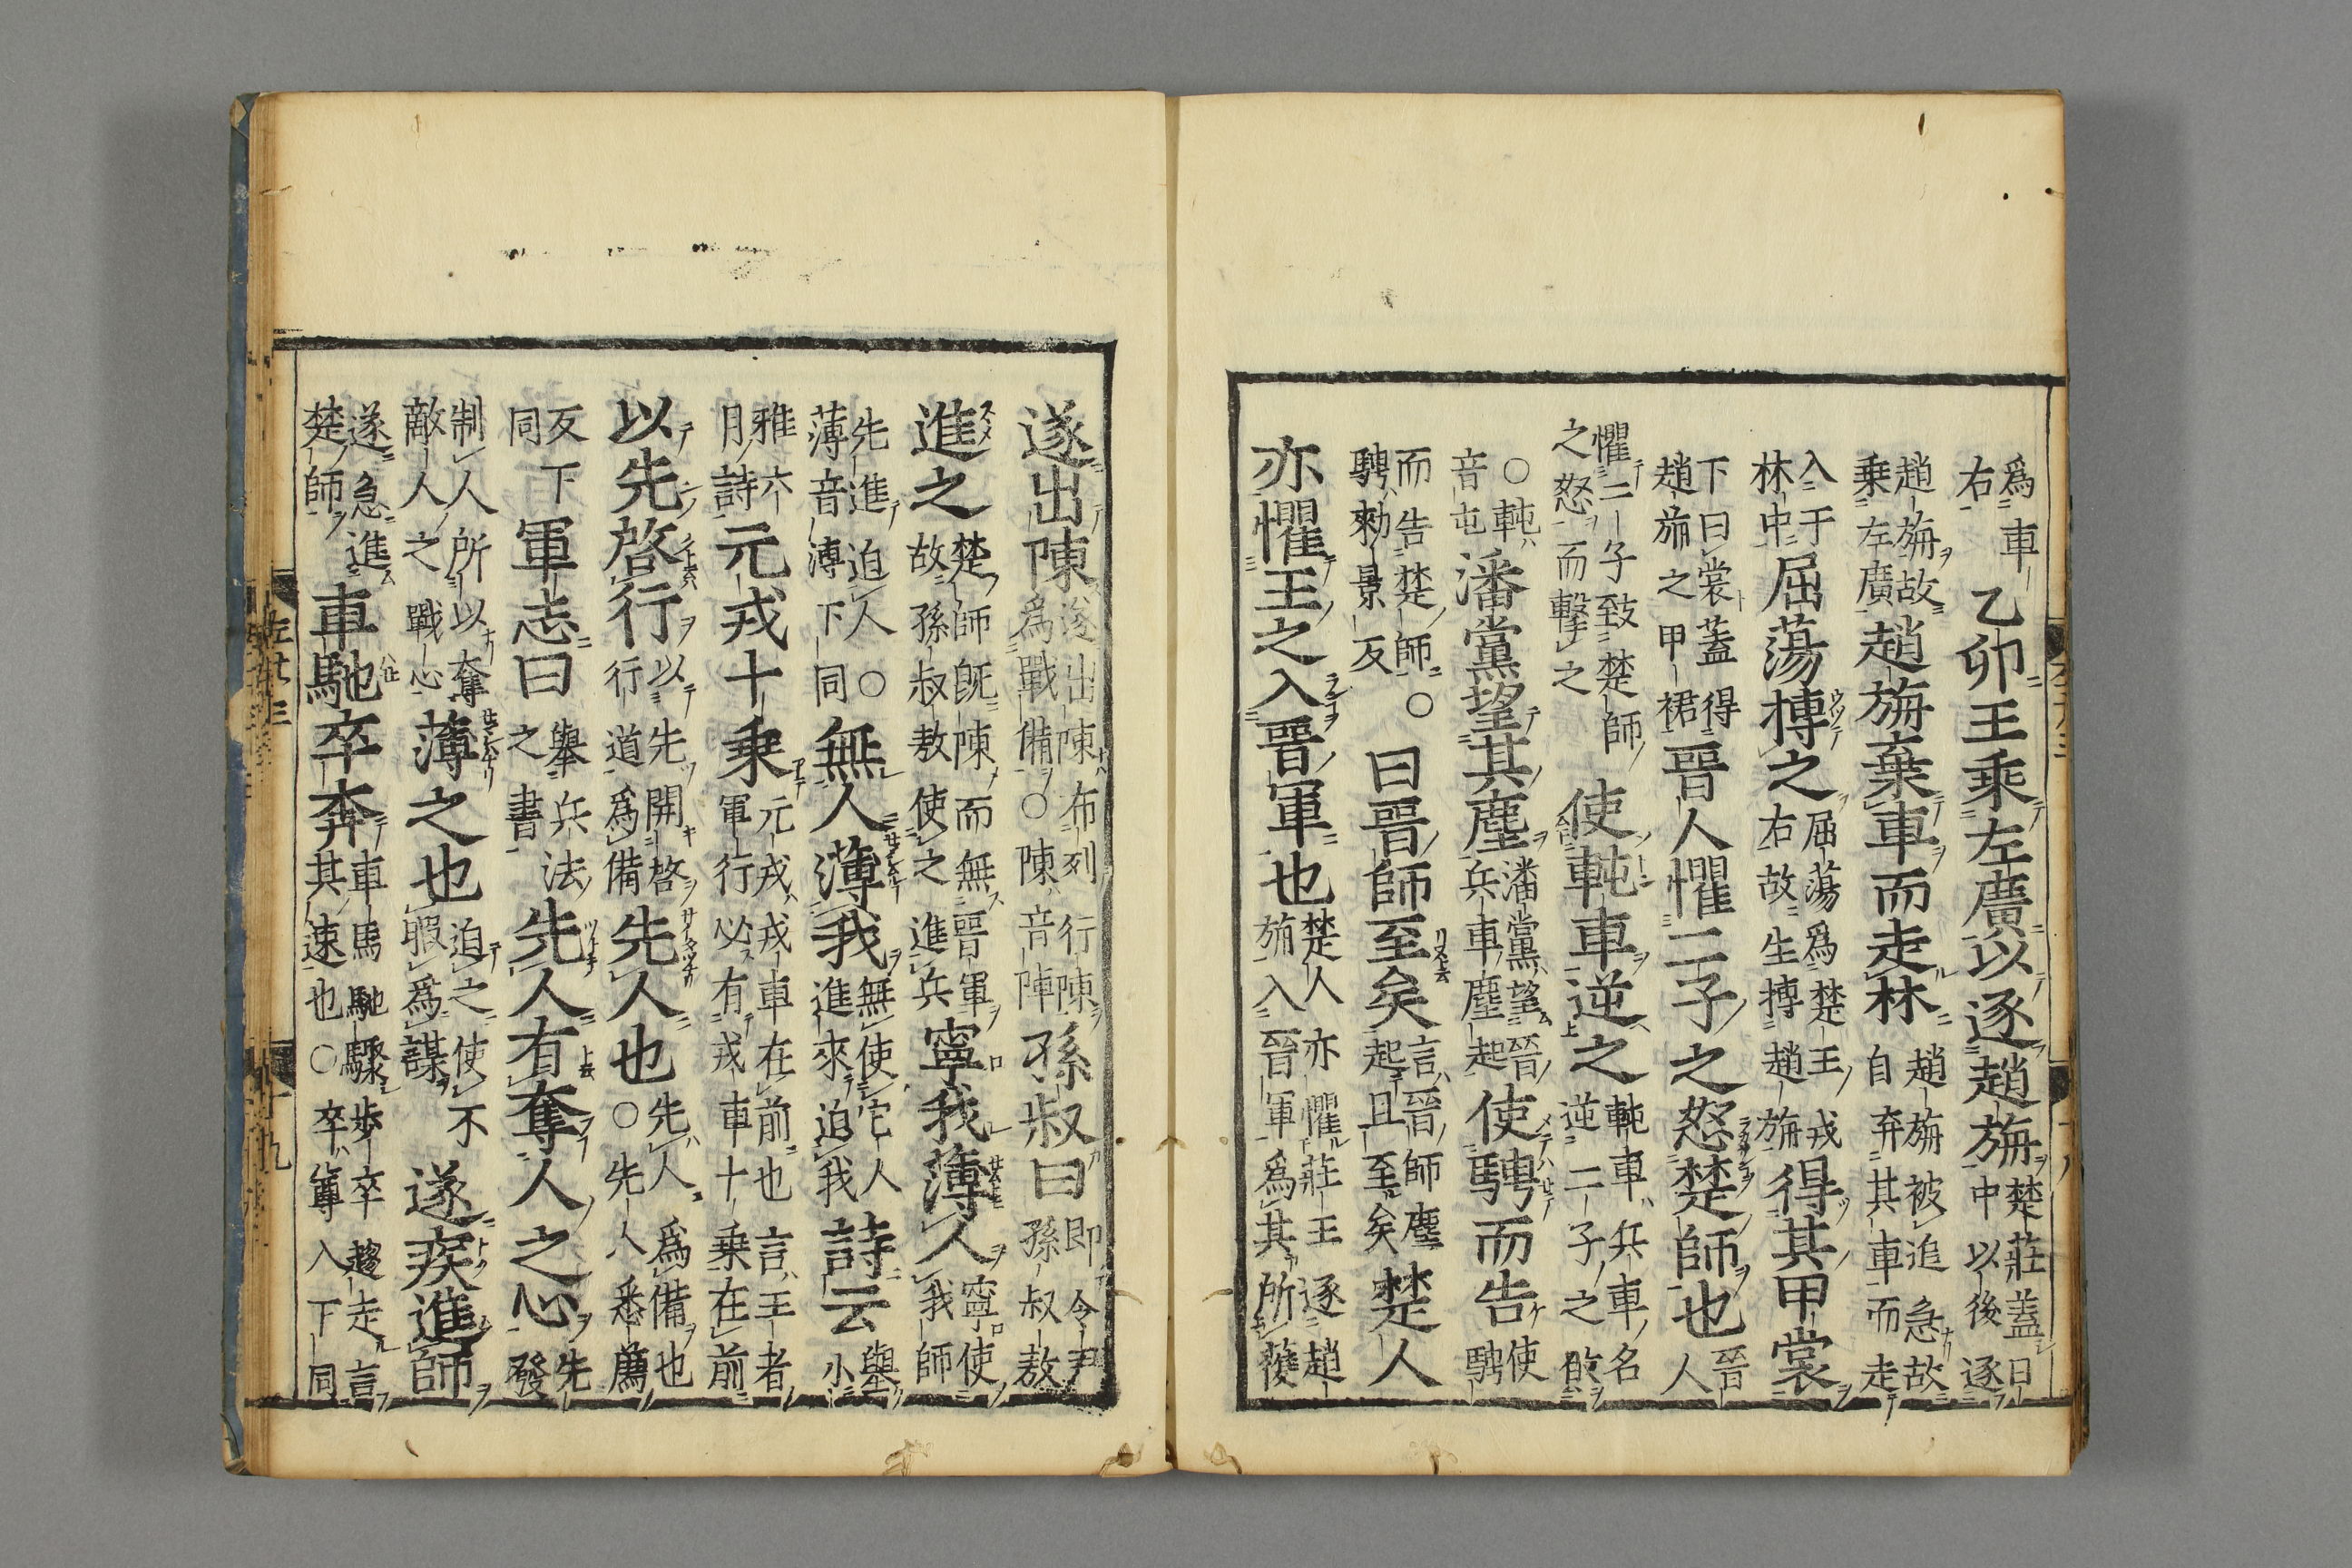 爲車右乙卯王乘左廣以逐趙旃楚莊蓋日中以後逐
趙旃故乗左廣趙旃棄車而走林趙旃被追急故自弃其車而走
入于林中屈蕩搏之屈蕩爲楚王戎右故生搏趙旃得其甲裳
下曰裳蓋得趙旃之甲裙晉人懼二子之怒楚師也晉人
懼二子致楚師之怒而擊之使軘車逆之軘車兵車名逆二子之欲
○軘音屯潘黨望其塵潘黨望晉兵車塵起使騁而告使騁
而告楚師○騁勑景反曰晉師至矣言晉師塵起且至矣楚人
亦懼王之入晉軍也楚人亦懼莊王逐趙旃入晉軍爲其所獲
遂出陳遂出陳布列行陳爲戰備○陳音陣孫叔曰即令尹孫叔敖
進之楚師旣陳而無晉軍故孫叔敖使之進兵寧我薄人寧使我師
先進迫人○薄音溥下同無人薄我無使它人進來迫我詩云舉小
雅六月詩元戎十乘元戎戎車在前也言王者軍行必有戎車十乗在前
以先啓行以先開啓行道爲備先人也先人爲備也○先人悉薦
反下同軍志曰舉兵法之書先人有奪人之心先發
制人所以奪敵人之戰心薄之也迫之使不暇爲謀遂疾進師
遂急進楚師車馳卒奔車馬馳驟歩卒趨走言其速也○卒尊入下同
左廿三
十九